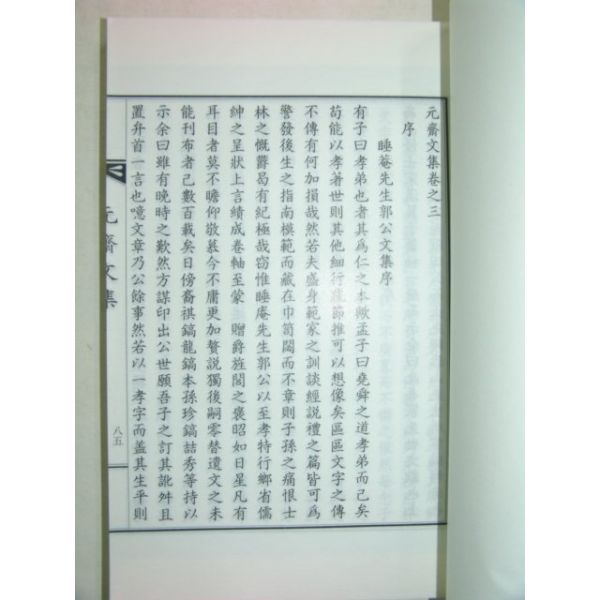 元齋文集卷之三
序
睡菴先生郭公文集序
有子曰孝弟也者其為仁之本歟孟子曰堯舜之道孝弟而已矣
苟能以孝著世則其他細行庶節推可以想像矣區區文字之傳
不傳有何加損哉然若夫盛身範家之訓談經說禮之篇皆可為
警發後生之指南模範而藏在巾笥閟而不章則子孫之痛恨士
林之慨欝曷有紀極哉窃惟睡庵先生郭公以至孝特行鄉省儒
紳之呈狀上言績成卷軸至蒙贈爵旌閭之褒昭如日星凡有
耳目者莫不瞻仰敬慕今不庸更加贅説獨後嗣零替遺文之未
能刊布者已數百載矣日傍裔祺鎬龍鎬本孫珍鎬喆秀等持以
示余曰雖有晚時之歎然方謀印出公世願吾子之訂其訛舛且
置弁首一言也噫文章乃公餘事然若以一孝字而盖其生平則
元齋文集
八五